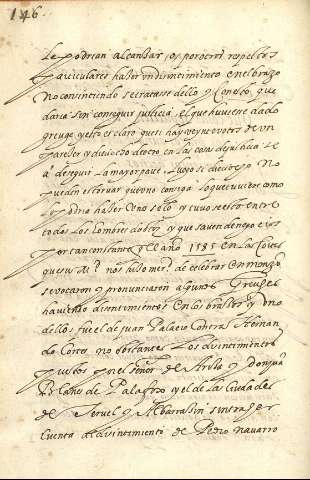 146.
Le podrian alcanzar, o por otros respectos
particulares hazer un disentimiento en el brazo
no consintiendo se tratasse dello y con esto que
daria sin conseguir justicia el que huviere dado
greuge y esto es claro que si hay veynte votos de un
parecer y dieciocho de otro en las cosas de justicia se
a de seguir la mayor parte. Luego si dieciocho no
pueden estorvar que no consiga lo que
podria hazer uno solo, y cuyo es esto entre
todos los hombres doctos y que saven de negocios
por tan constante. Que el año 1585 en las Cortes
que su Mt nos hizo merd de celebrar en Monzon
se votaron y pronunciaron algunos Greuges
haviendo disentimientos en los brazos y uno
dellos fue el de Juan Palacio contra Hernan
do Cortes no obstantes los disintimientos
puestos por el señor de Ariño y Don Juan
Blanes de Palafox y el de las Ciudades
de Teruel y Albarrassin sin traher
cuenta al disintimiento de Pedro Navarro